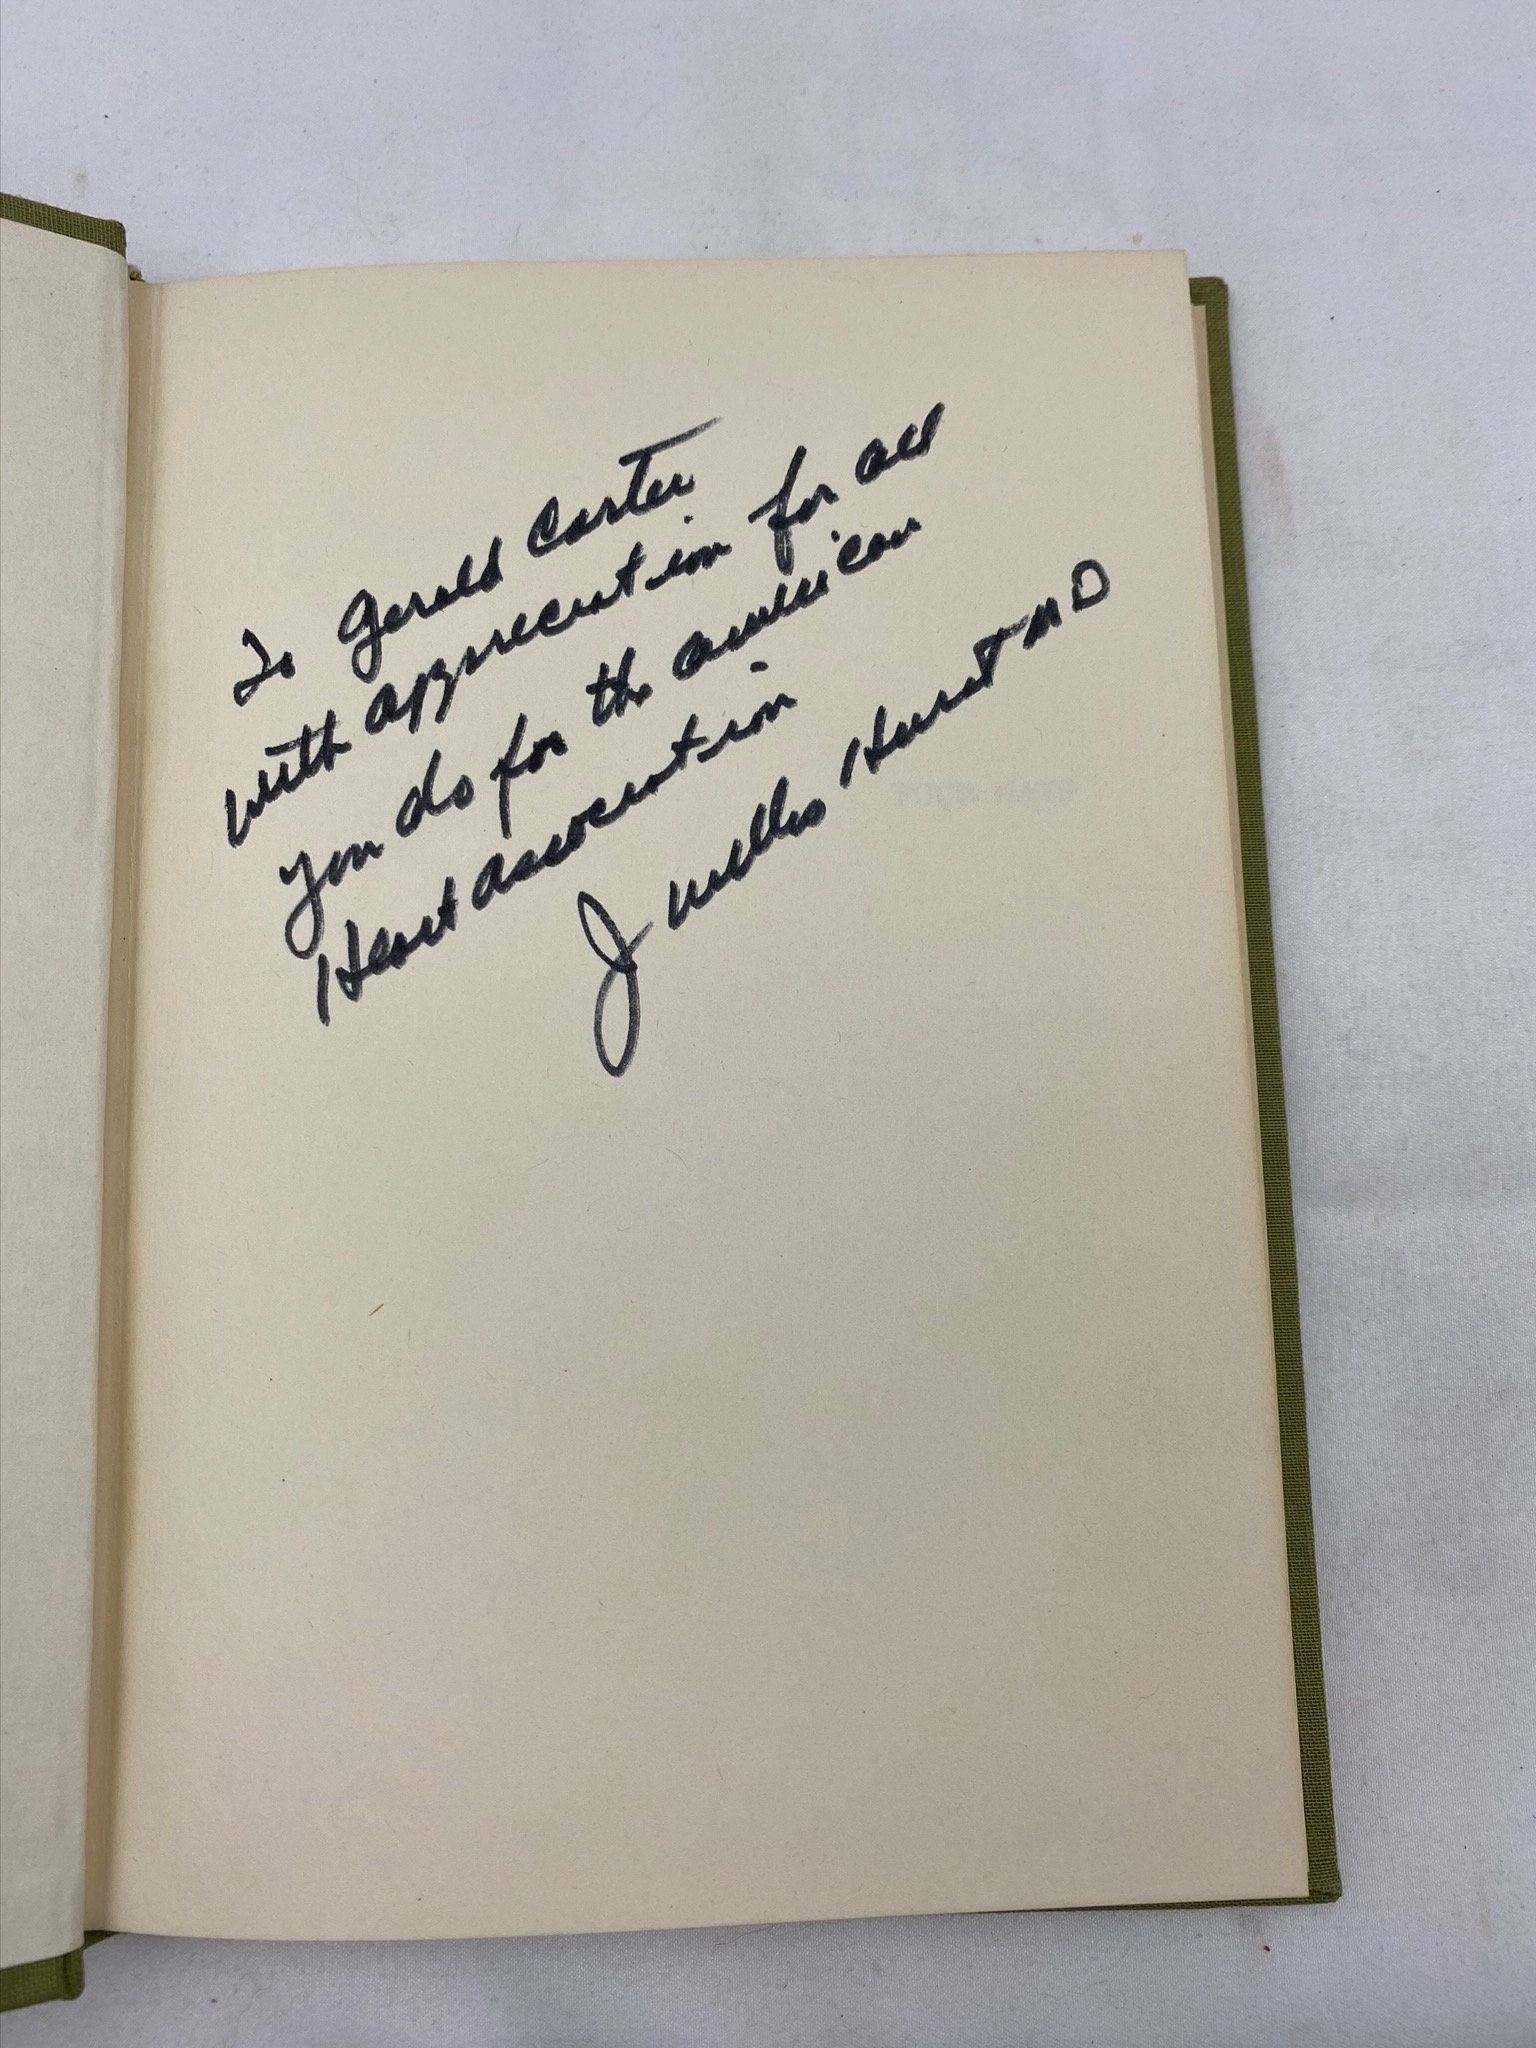 To Gerald Carter
with appreciation for all
you do for the American
Heart Association
J Willis Hurst MD